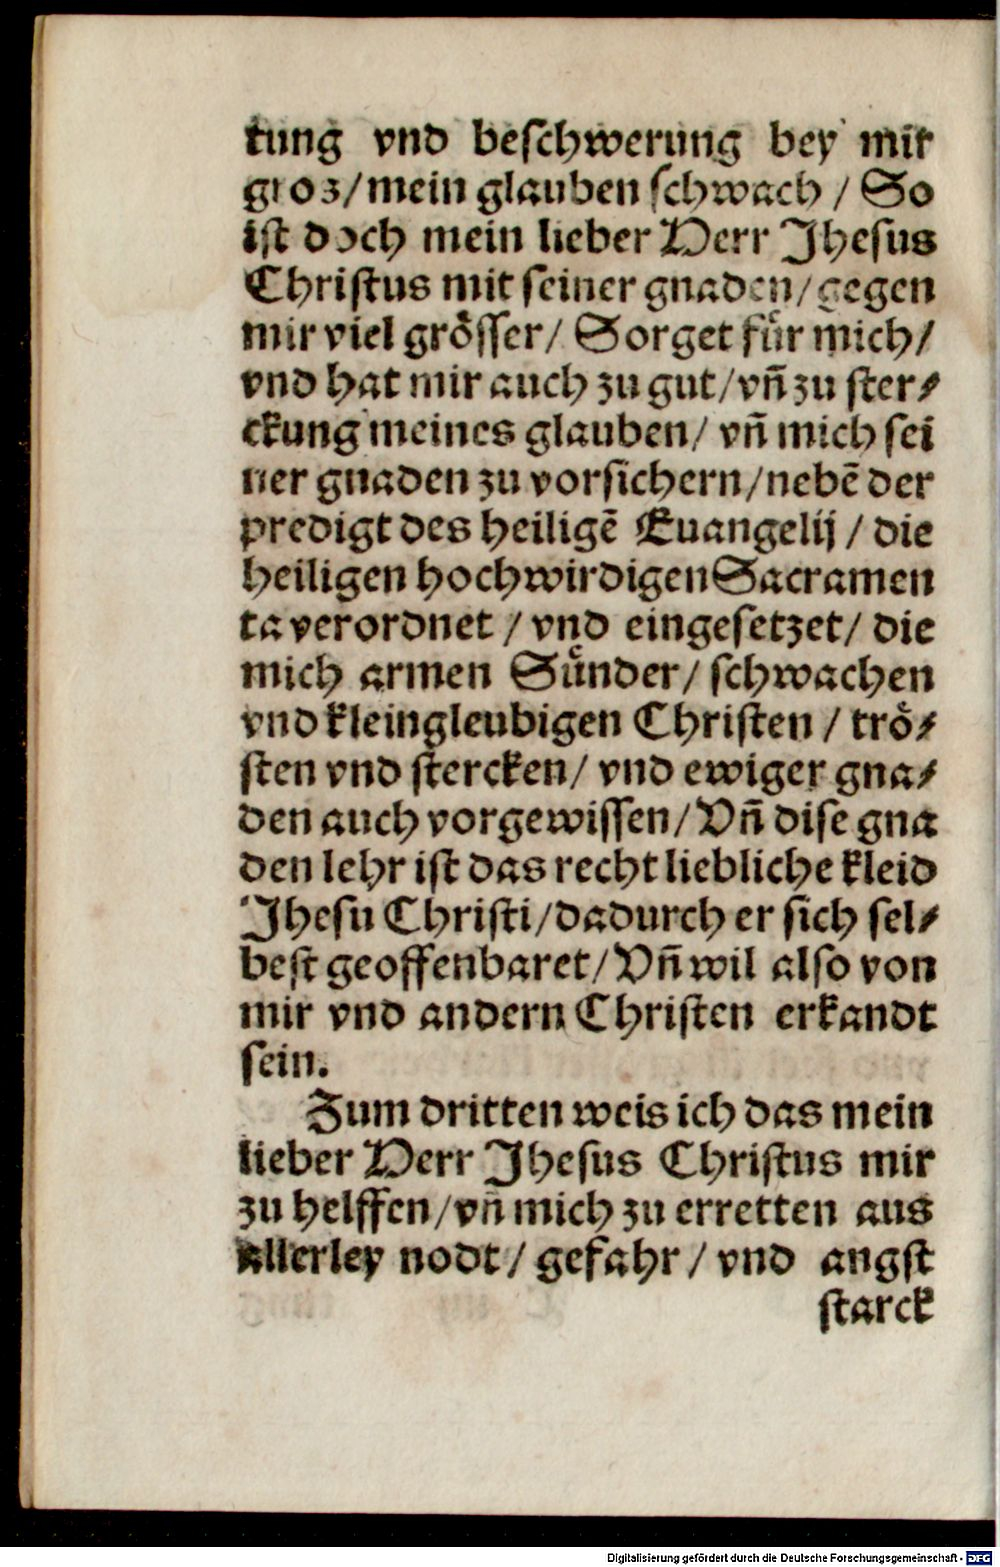 tung vnd beſchwerung bey mir
gros/mein glauben ſchwach / So
iſt doch mein lieber Herr Jheſus
Chriſtus mit ſeiner gnaden/gegen
mir viel groͤſſer/ Sorget fuͤr mich/
vnd hat mir auch zu gut/vñ zu ſter⸗
ckung meines glauben/ vñ mich ſei
ner gnaden zu vorſichern/nebẽ der
predigt des heiligẽ Euangelij / die
heiligen hochwirdigen Sacramen
ta verordnet / vnd eingeſetzet/ die
mich armen Suͤnder/ ſchwachen
vnd kleingleubigen Chriſten / troͤ⸗
ſten vnd ſtercken/ vnd ewiger gna⸗
den auch vorgewiſſen/Vñ diſe gna
den lehr iſt das recht liebliche kleid
Jheſu Chriſti/dadurch er ſich ſel⸗
beſt geoffenbaret/Vñ wil alſo von
mir vnd andern Chriſten erkandt
ſein.
Zum dritten weis ich das mein
lieber Herr Jheſus Chriſtus mir
zu helffen/vñ mich zu erretten aus
allerley nodt/ gefahr / vnd angſt
ſtarck
Digitalisierung gefördert durch die Deutsche Forschungsgemeinschaft - DFG